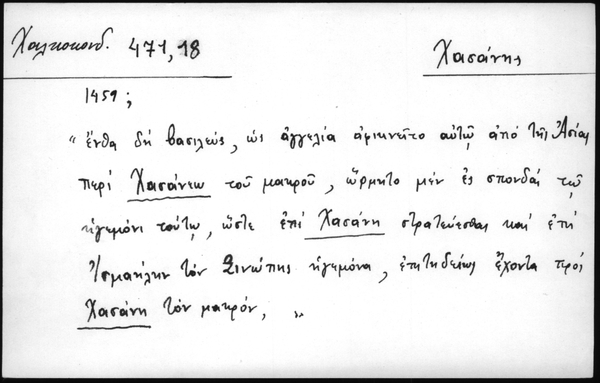 Χαλκοκονδ. 471,18
Χασάνης
1459;
" ἔνθα δή βασιλεύς, ὡς ἀγγελία ἀφικνεῖτο αὐτῷ ἀπό τῆς Ἀσίας
περί Χασάνεω τοῦ μακροῦ, ὥρμητο μέν ἐς σπονδάς τῷ
ἡγεμόνι τούτῳ, ὥστε ἐπί Χασάνη στρατεύεσθαι καί ἐπί
Ἰσμαήλην τόν Σινώπης ἡγεμόνα, ἐπιτηδείως ἔχοντα πρός
Χασάνη τόν μακρόν, "